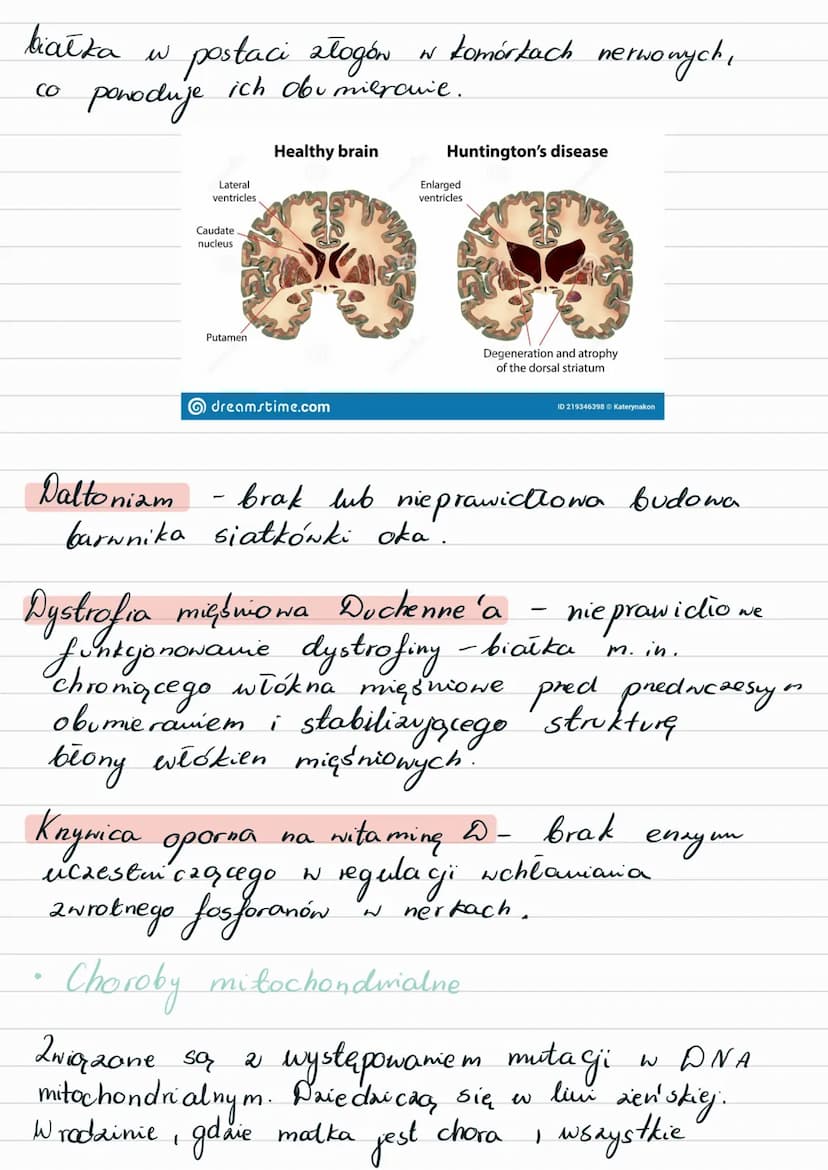 białka w postaci złogów w komórkach nerwowych,
co powoduje ich obumieranie.
Healthy brain
Huntington's disease
Lateral
ventricles
Enlarged
ventricles
Caudate
nucleus
Putamen
Degeneration and atrophy
of the dorsal striatum
dreamstime.com
ID 219346398 © Katerynakon
Daltonizm - brak lub nieprawidłowa budowa
barwnika siatkówki oka.
Dystrofia mięśniowa Duchenne'a - nieprawidłowe
funkcjonowanie dystrofiny - białka m. in.
chroniącego włókna mięśniowe przed przedwczesnym
obumieraniem i stabilizującego strukturę
błony włókien mięśniowych.
Krzywica oporna na witaminę D - brak enzymu
uczestniczącego w regulacji wchłaniania
zwrotnego fosforanów w nerkach.
• Choroby mitochondrialne
Związane są z występowaniem mutacji w DNA
mitochondrialnym. Dziedziczą się w linii żeńskiej.
W rodzinie, gdzie matka jest chora, wszystkie